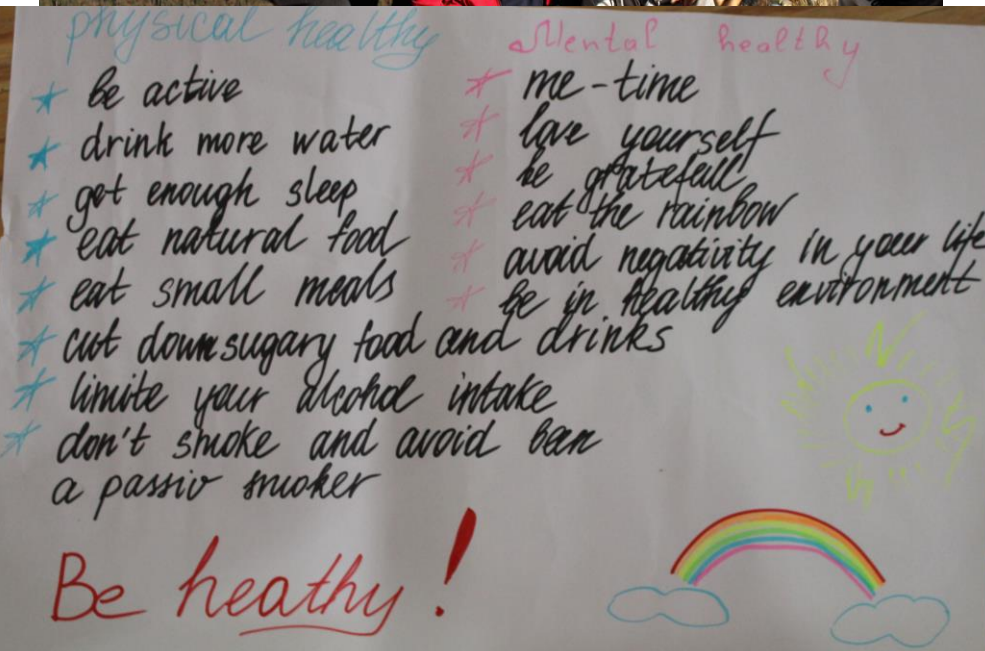 physical healthy
be active
drink more water
get enough sleep
eat natural food
eat small meals
cut down sugary food and drinks
limite your alcohol intake
don't smoke and avoid
a passiv smoker
Mental healthy
me-time
love yourself
be gratefull
eat the rainbow
avoid negativity in your life
be in healthy environment
Be heathy!